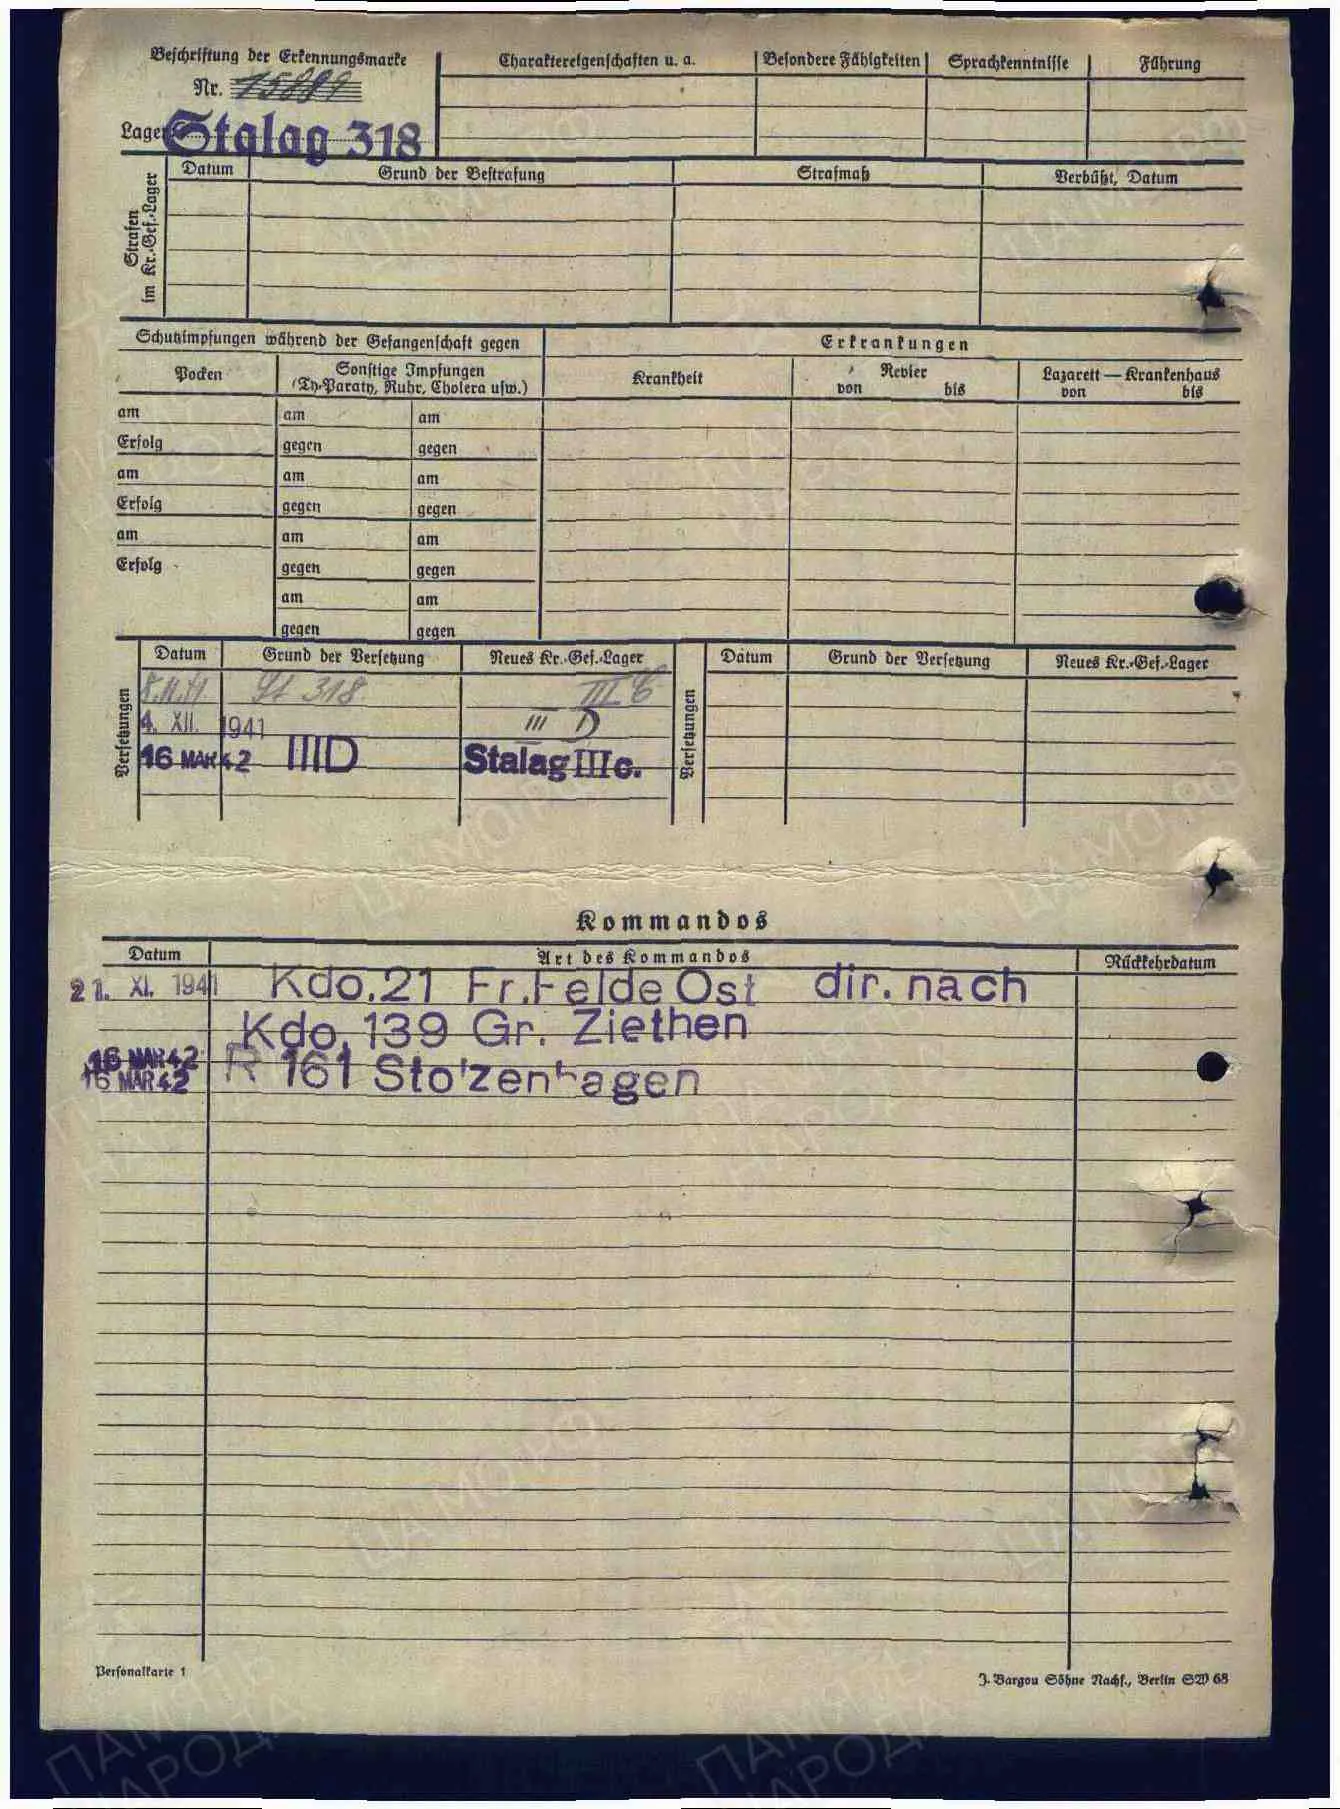 Beschriftung der Erkennungsmarke
Nr.
Lager: Stalag 318
Charaktereigenschaften u. a. Besondere Fähigkeiten Sprachkenntnisse Führung
Strafen
im Kr.-Gef.-Lager
Datum Grund der Bestrafung Strafmaß Verbüßt, Datum
Schutzimpfungen während der Gefangenschaft gegen Erkrankungen
Pocken Sonstige Impfungen
(Ty.-Paraty, Ruhr, Cholera usw.)
Krankheit Revier
von bis
Lazarett — Krankenhaus
von bis
am am am
Erfolg gegen gegen
am am am
Erfolg gegen gegen
am am am
Erfolg gegen gegen
am am
gegen gegen
Versetzungen
Datum Grund der Versetzung Neues Kr.-Gef.-Lager
8.11.41 St 318 III C
4. XII. 1941 III D
16 MAR 42 IIID Stalag III c.
Versetzungen
Datum Grund der Versetzung Neues Kr.-Gef.-Lager
Kommandos
Datum Art des Kommandos Rückkehrdatum
21. XI. 1941 Kdo.21 Fr.Felde Ost dir. nach
Kdo. 139 Gr. Ziethen
16 MAR 42
16 MAR 42 R 161 Stolzenhagen
Personalkarte 1
J. Bargou Söhne Nachf., Berlin SW 68
ПАМЯТЬ
НАРОДА
ЦАМО.РФ